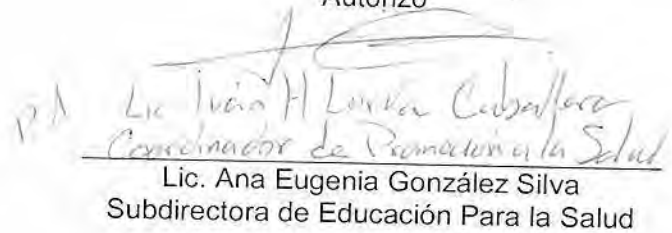 Autorizó
P.A Lic Iván H Caballero
Coordinador de Promoción a la Salud
Lic. Ana Eugenia González Silva
Subdirectora de Educación Para la Salud